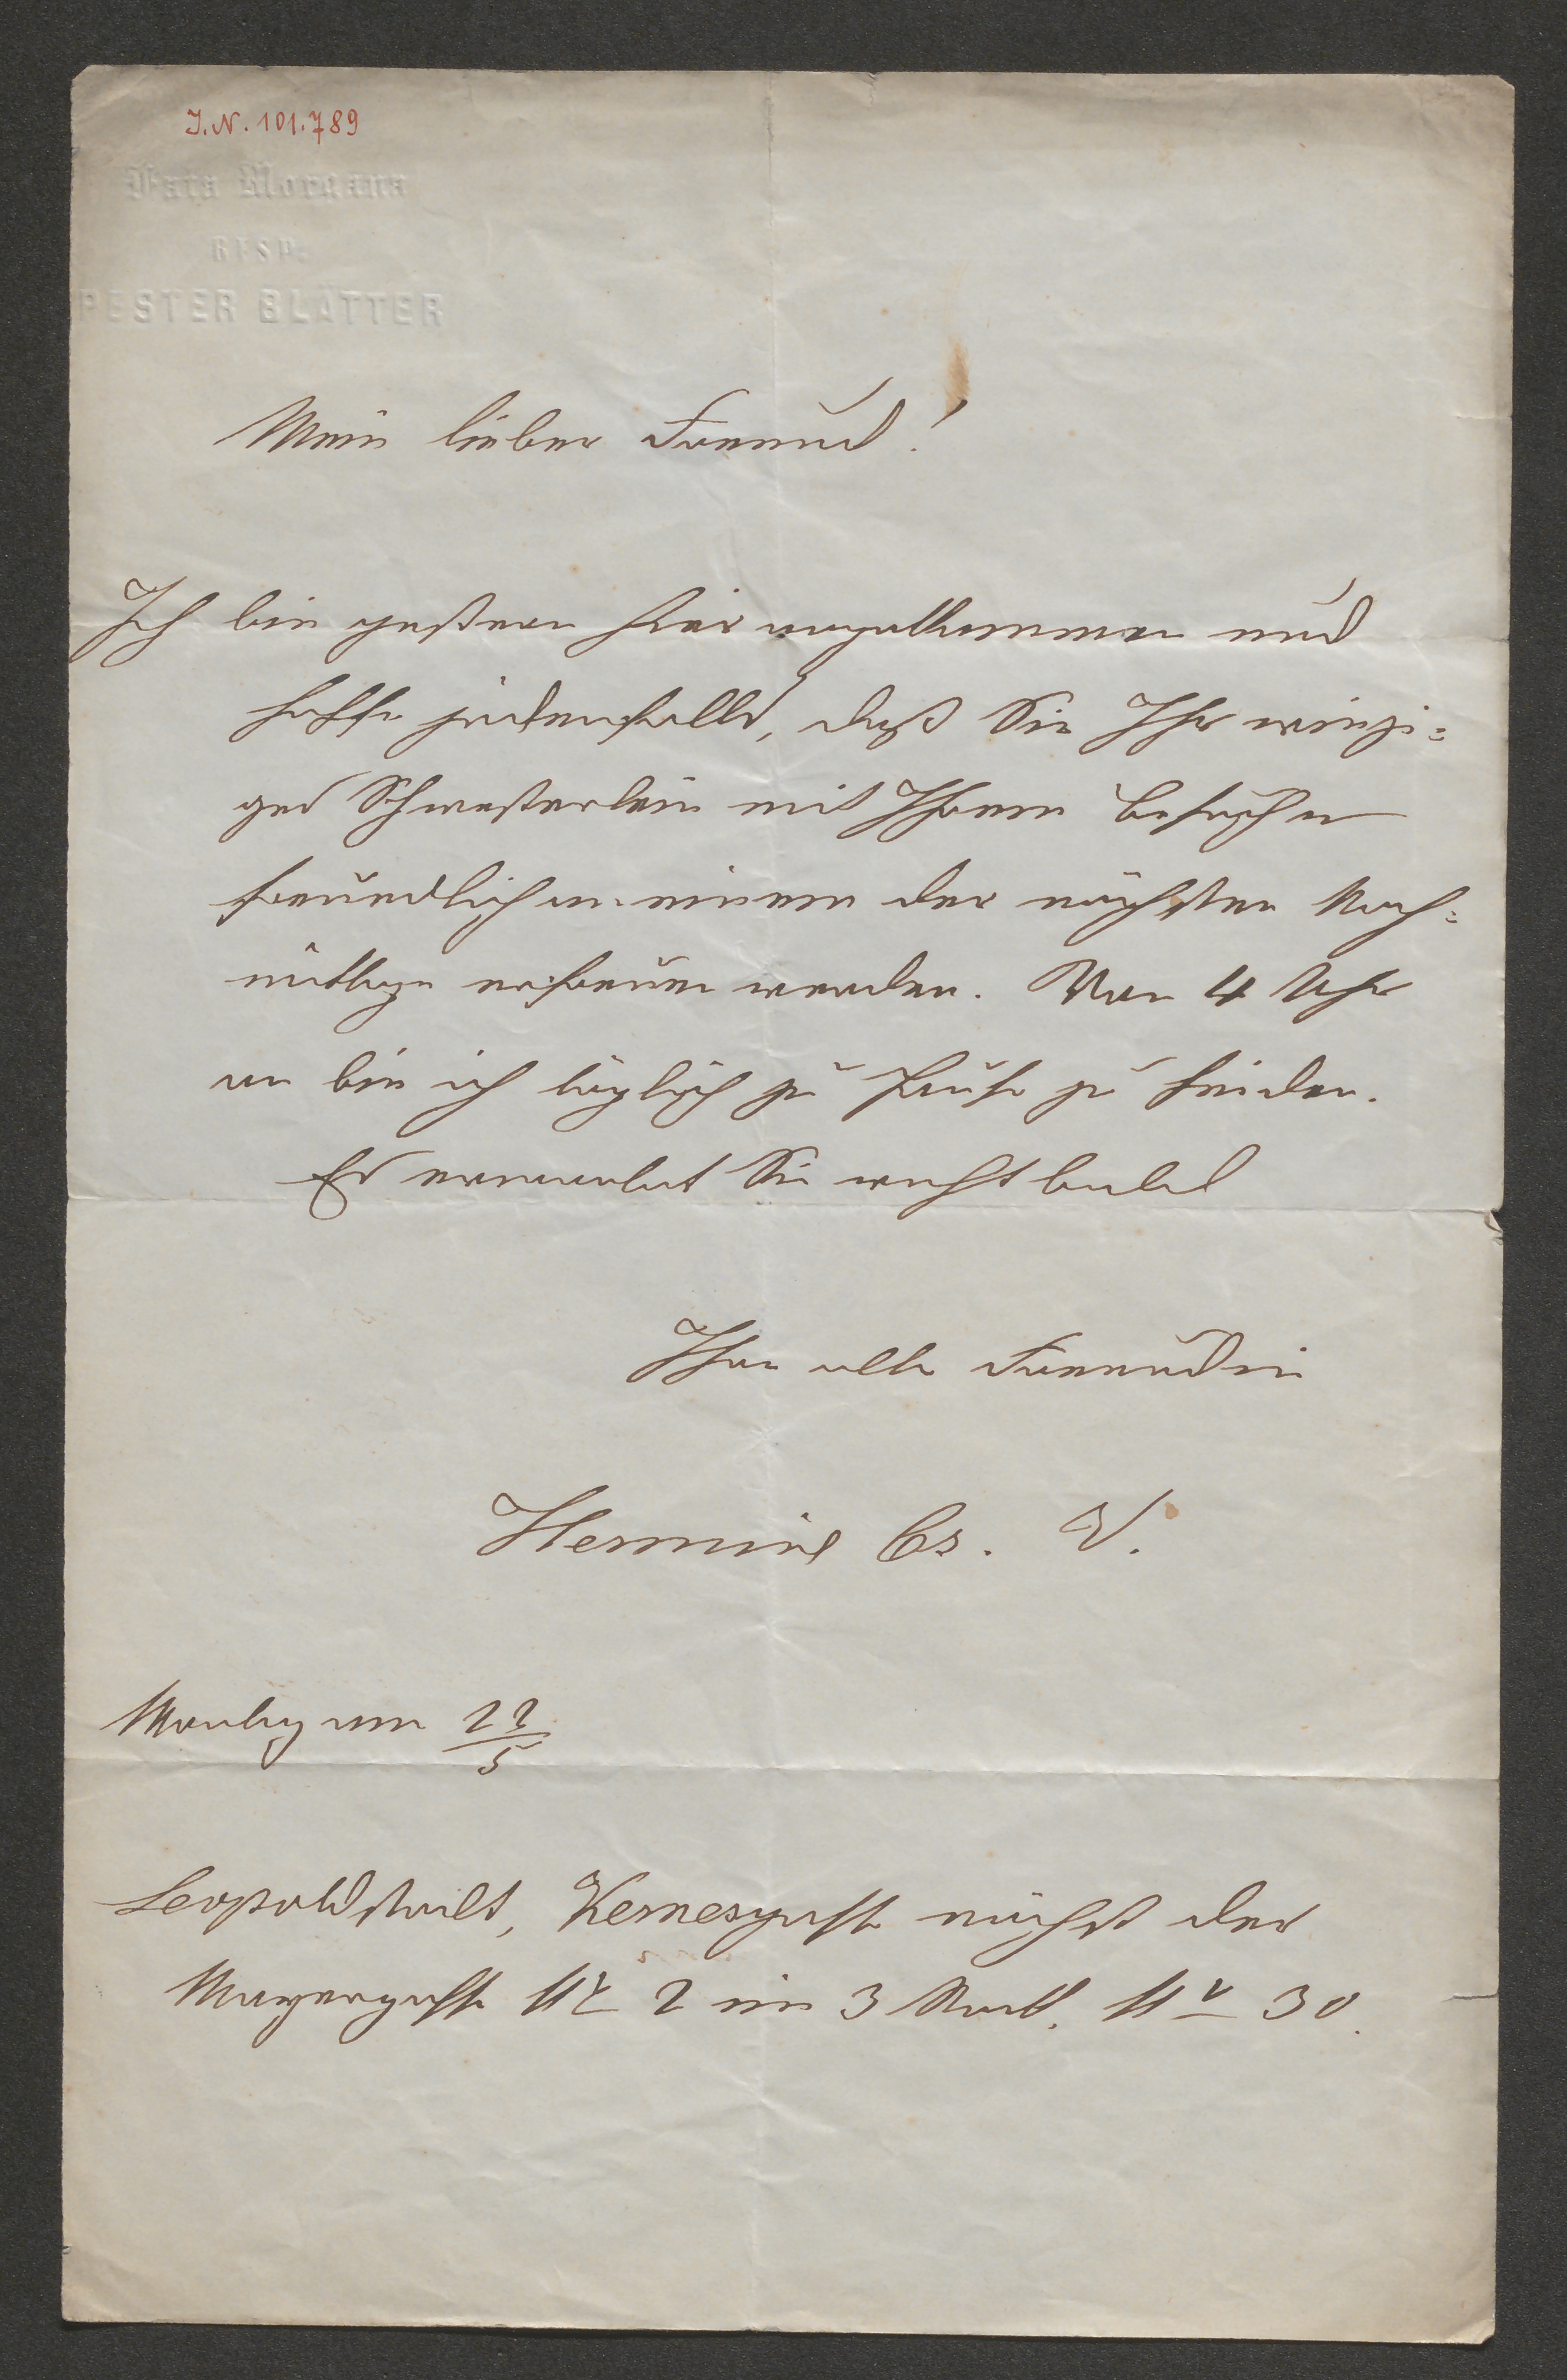 J.N. 101.789
Fata Morgana
RESP.
PESTER BLÄTTER
Mein lieber Freund!
Ich bin gestern hier angekommen und
hoffe jedenfalls, daß Sie Ihr winzi=
ges Schwesterlein mit Ihrem Besuche
freundlich an einem der nächsten Nach=
mittage erfreuen werden. Von 4 Uhr
an bin ich täglich zu Hause zu finden.
Es erwartet Sie recht bald
Ihre alte Freundin
Hermine Cs. V.
Montag am 22/5
Leopoldstadt, Nemesgasse nächst der
Mayergasse Nr 2 im 3 Stock. Nr 30.